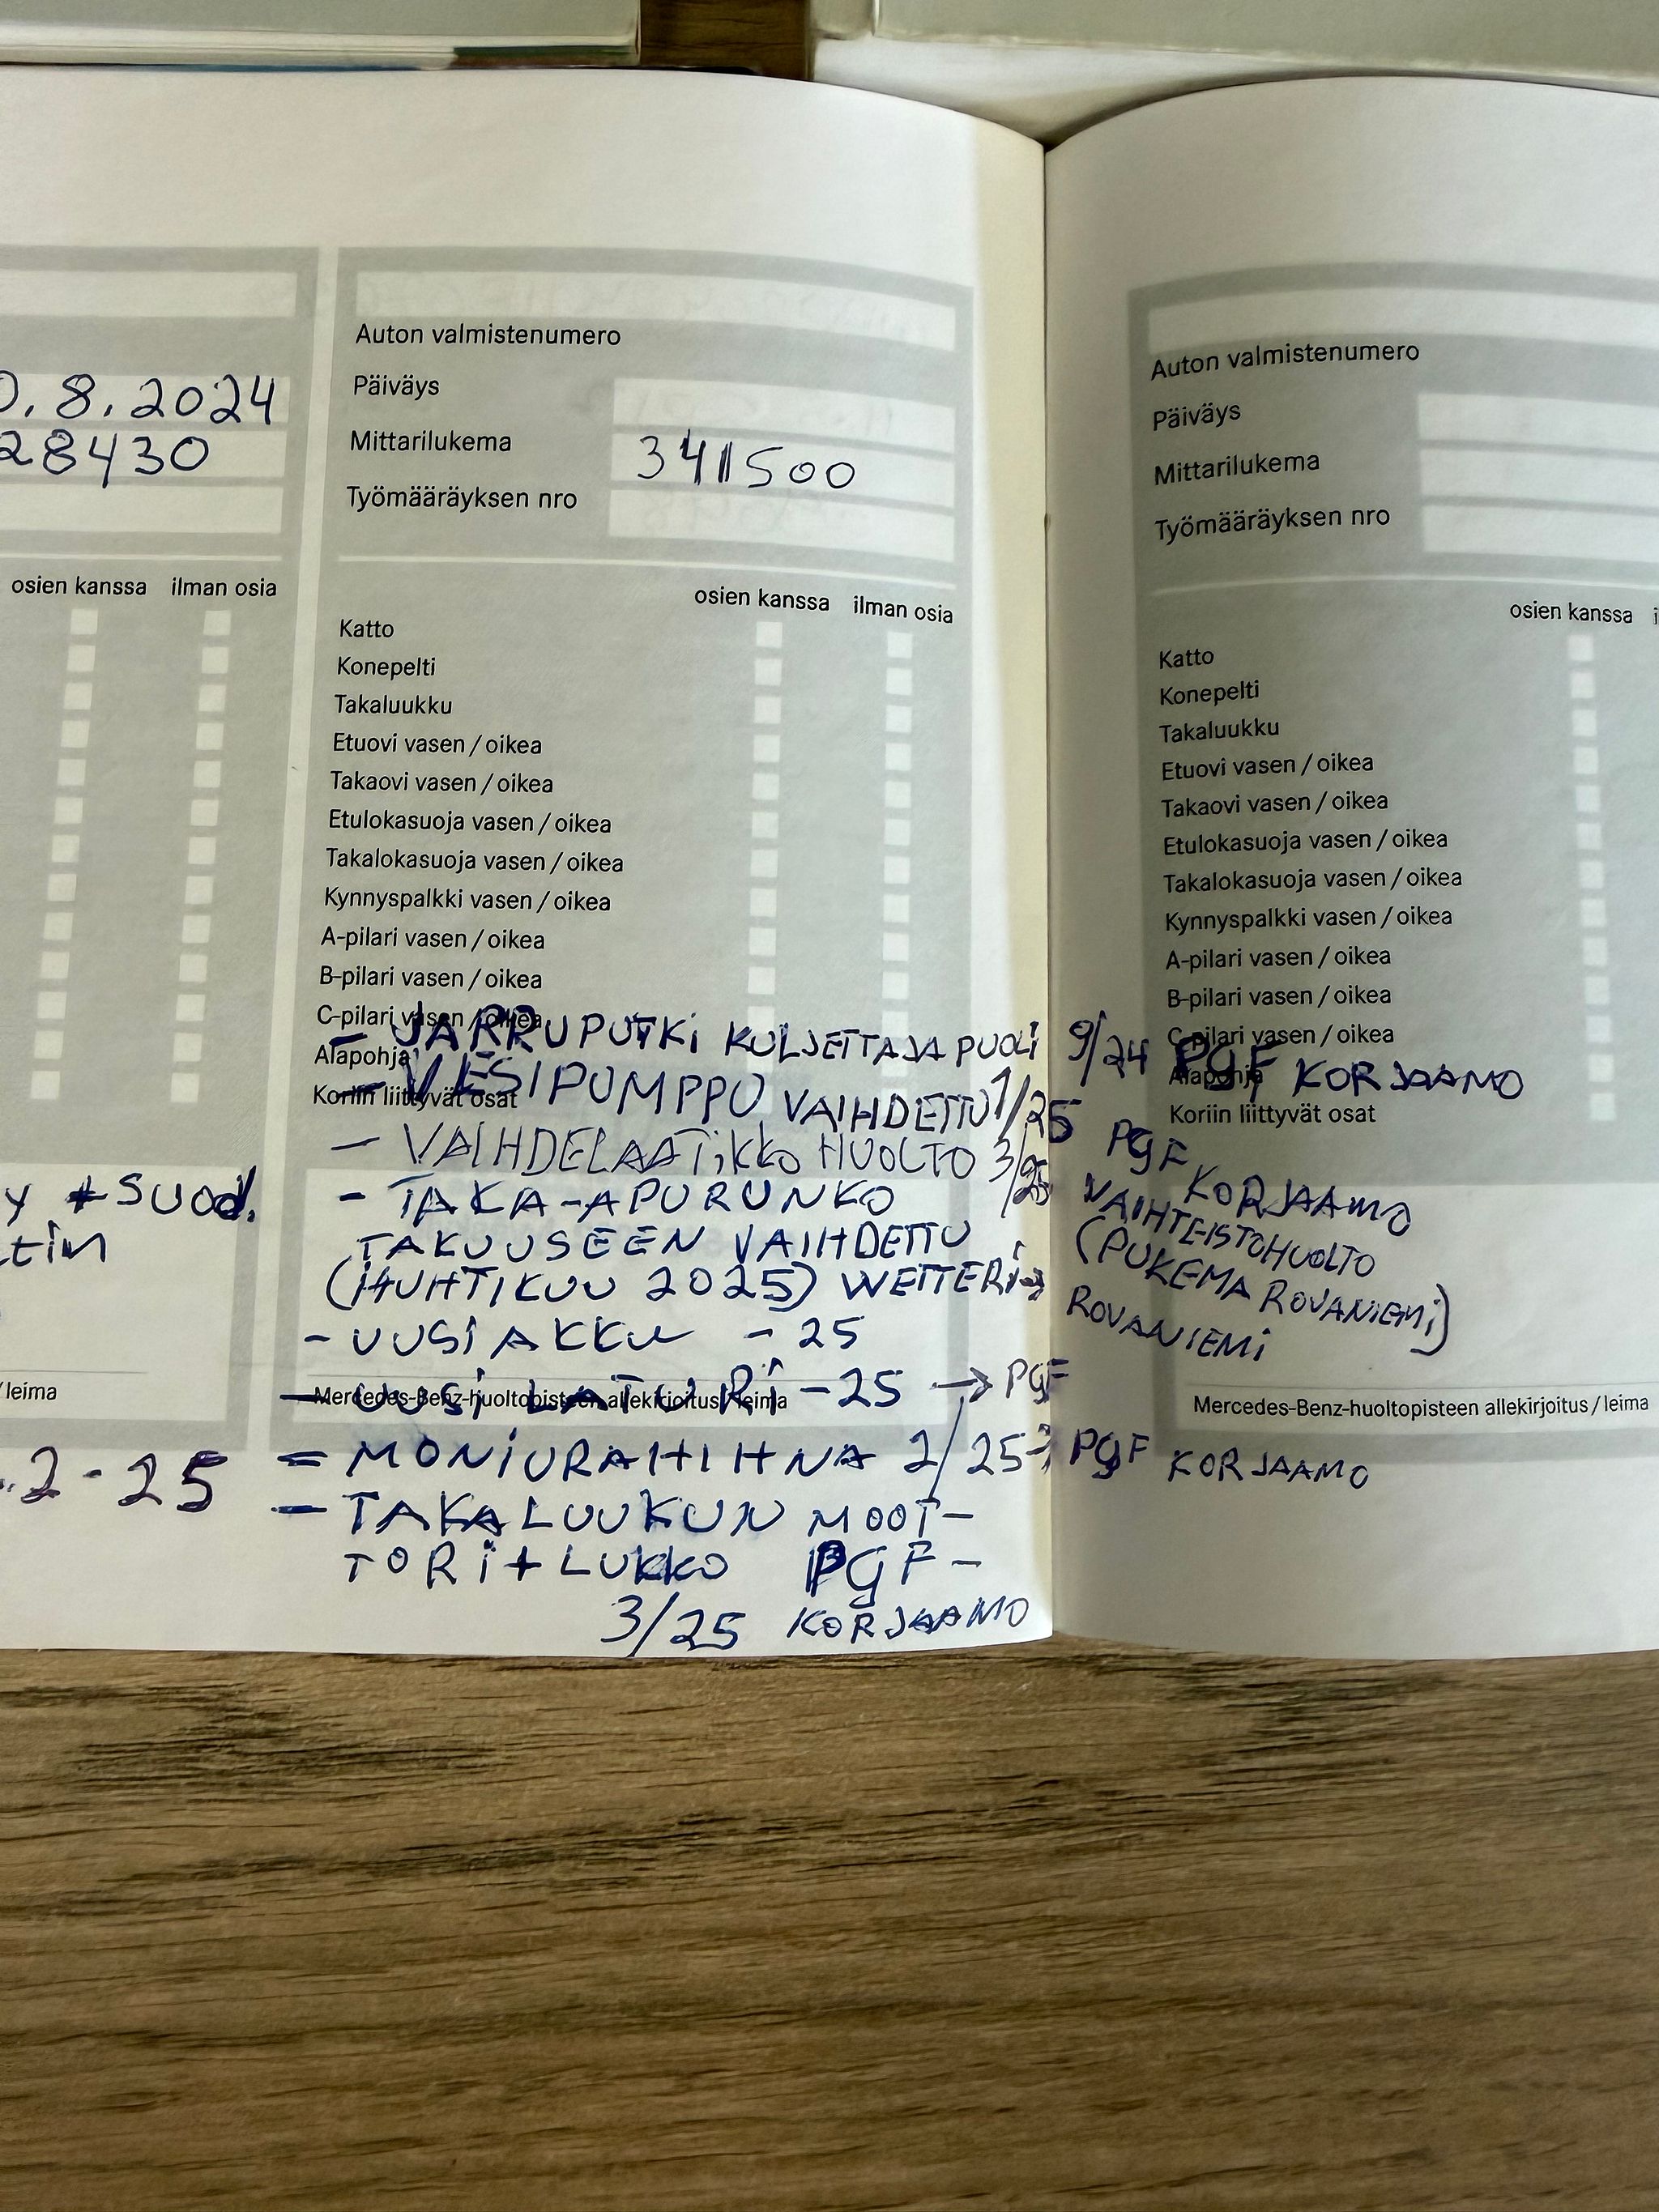 8.2024
28430
osien kanssa ilman osia
y + SUOd.
ttin
/leima
.2-25
Auton valmistenumero
Päiväys
Mittarilukema 341500
Työmääräyksen nro
osien kanssa ilman osia
Katto
Konepelti
Takaluukku
Etuovi vasen / oikea
Takaovi vasen / oikea
Etulokasuoja vasen / oikea
Takalokasuoja vasen / oikea
Kynnyspalkki vasen / oikea
A-pilari vasen / oikea
B-pilari vasen / oikea
C-pilari vasen / oikea
Alapohja
Koriin liittyvät osat
- JARRUPUTKI KULJETTAJA PUOLI 9/24 PGF KORJAAMO
- VESIPUMPPU VAIHDETTU 1/25 PGF KORJAAMO
- VAIHDELAATIKKO HUOLTO 3/25 VAIHTEISTOHUOLTO
(PUKEMA ROVANIEMI)
- TAKA-APURUNKO
TAKUUSEEN VAIHDETTU
(HUHTIKUU 2025) WETTERI → ROVANIEMI
- UUSI AKKU - 25
- UUSI LATURI - 25 → PGF
Mercedes-Benz-huoltopisteen allekirjoitus / leima
= MONIURAHIHNA 2/25 → PGF KORJAAMO
- TAKALUUKUN MOOT-
TORI + LUKKO PGF-
3/25 KORJAAMO
Auton valmistenumero
Päiväys
Mittarilukema
Työmääräyksen nro
osien kanssa
Katto
Konepelti
Takaluukku
Etuovi vasen / oikea
Takaovi vasen / oikea
Etulokasuoja vasen / oikea
Takalokasuoja vasen / oikea
Kynnyspalkki vasen / oikea
A-pilari vasen / oikea
B-pilari vasen / oikea
C-pilari vasen / oikea
Alapohja
Koriin liittyvät osat
Mercedes-Benz-huoltopisteen allekirjoitus / leima